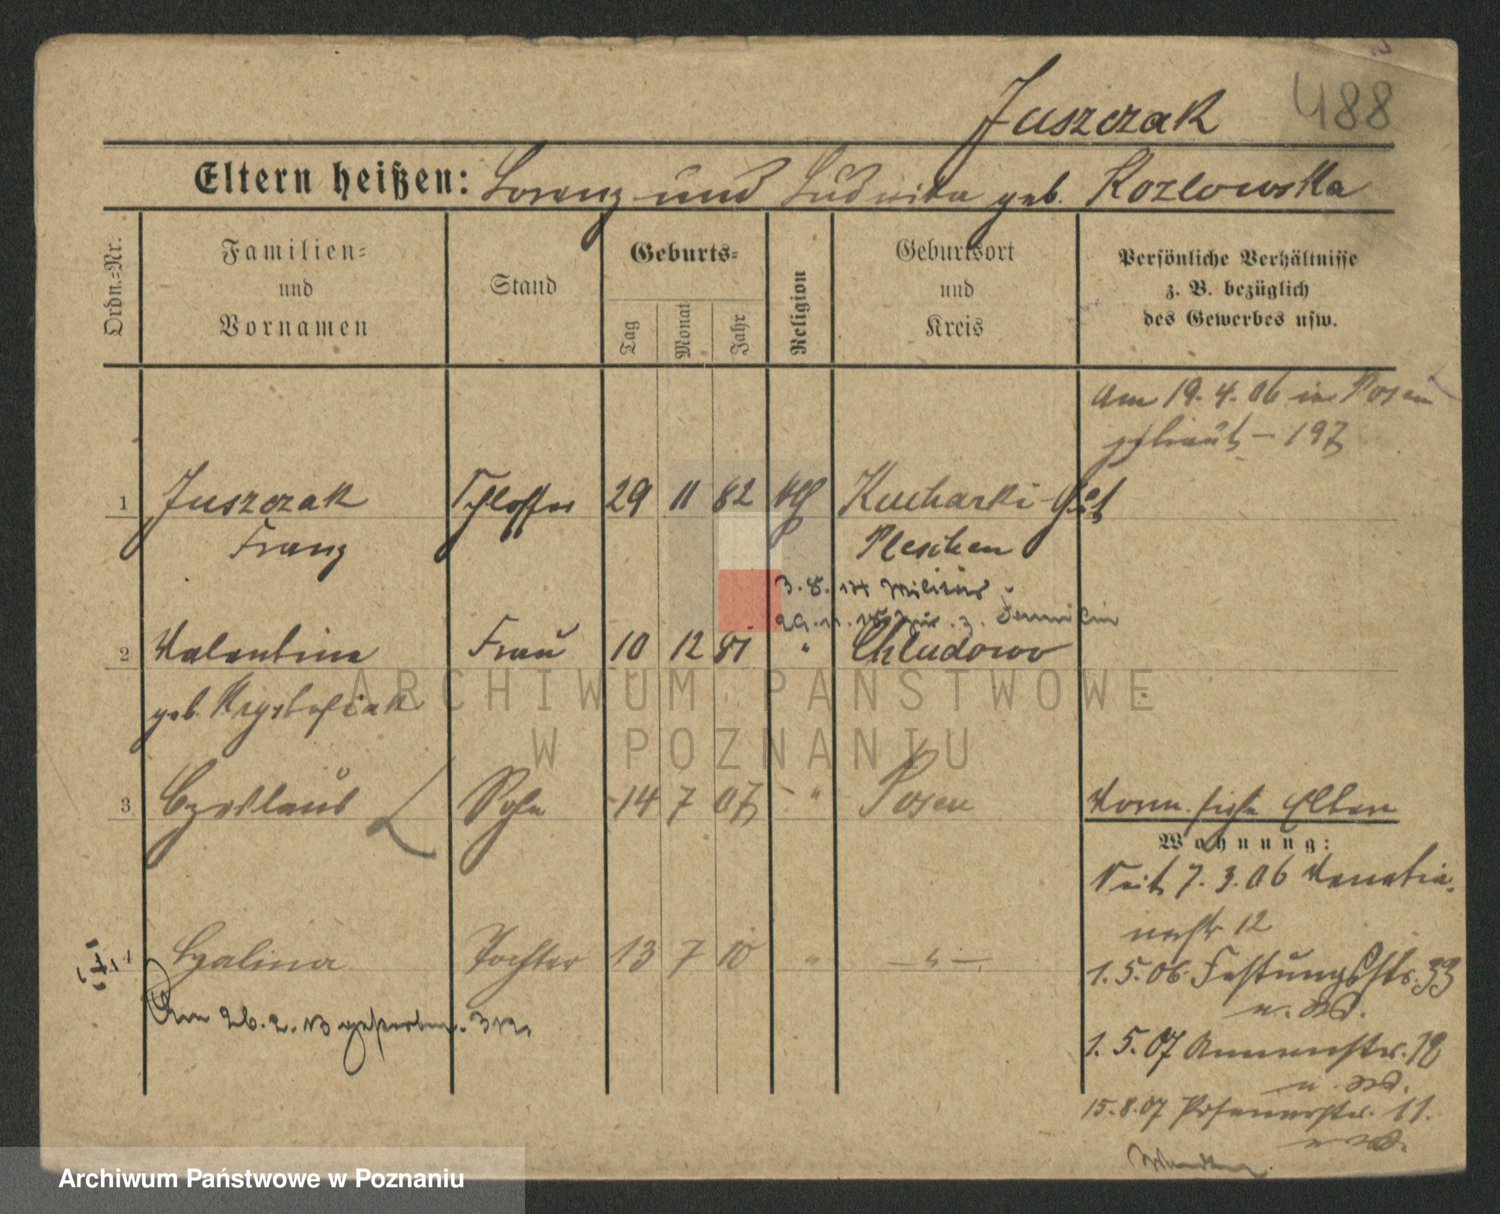 488
Juszczak
Eltern heißen: Lorenz und Ludwika geb. Kozlowska
Ordn.-Nr.
Familien- und Vornamen
Stand
Geburts-
Tag
Monat
Jahr
Religion
Geburtsort und Kreis
Persönliche Verhältnisse z. B. bezüglich des Gewerbes usw.
Am 19. 4. 06 in Posen
getraut – 197
1 Juszczak Schlosser 29 11 82 kth Kucharki-Gut
Franz Pleschen
3. 8. 14 Militär
29. 11. 18 zur. z. Familie
2 Valentine Frau 10 12 81 " Chludowo
geb. Krystofiak
ARCHIWUM PAŃSTWOWE
W POZNANIU
3 Czeslaus Sohn 14 7 07 " Posen
Vorm. siehe Eltern
Wohnung:
Seit 7. 3. 06 Venetia-
nerstr 12
4 Czalina Tochter 13 7 10 " – " –
1. 5. 06 Festungsstr. 33
Am 26. 2. 13 gestorben. 312
1. 5. 07 Annenstr. 12
15. 8. 07 Posenerstr. 11.
Archiwum Państwowe w Poznaniu